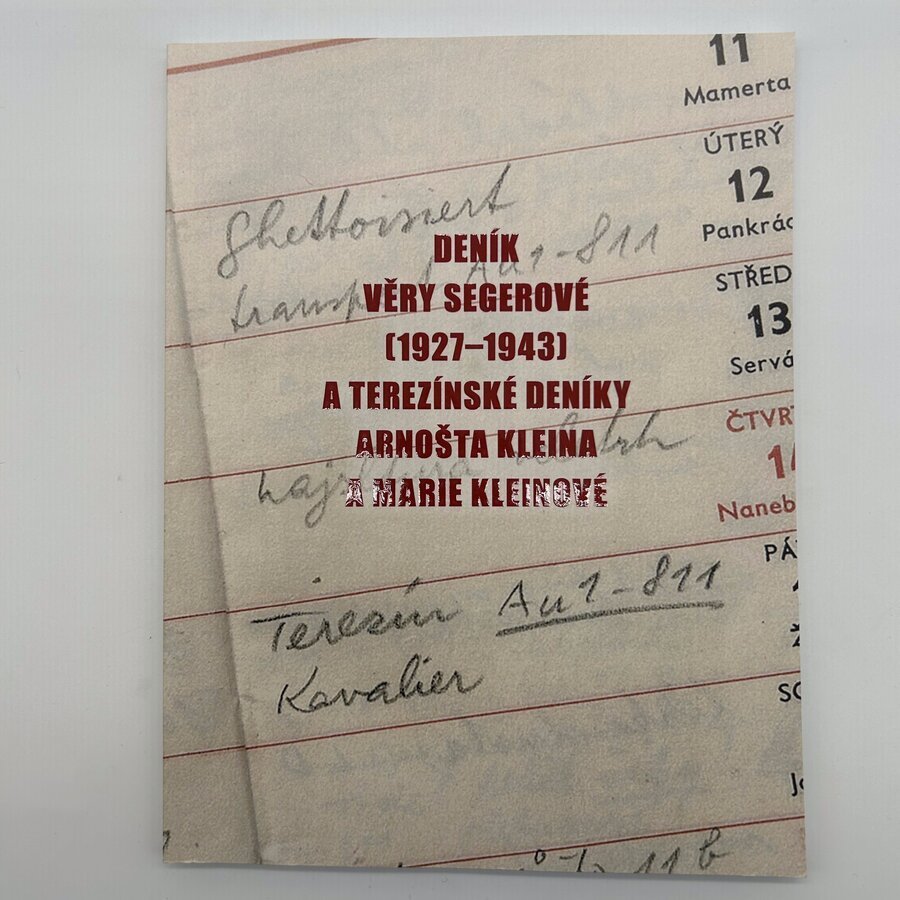 11
Mamerta
ÚTERÝ
12
Pankrác
Ghettoisiert
transport Au1-811
DENÍK
VĚRY SEGEROVÉ
(1927–1943)
A TEREZÍNSKÉ DENÍKY
ARNOŠTA KLEINA
A MARIE KLEINOVÉ
STŘED
13
Servá
ČTVRT
14
Naneb
PÁ
Terezín Au1-811
Kavalier
SO
11b